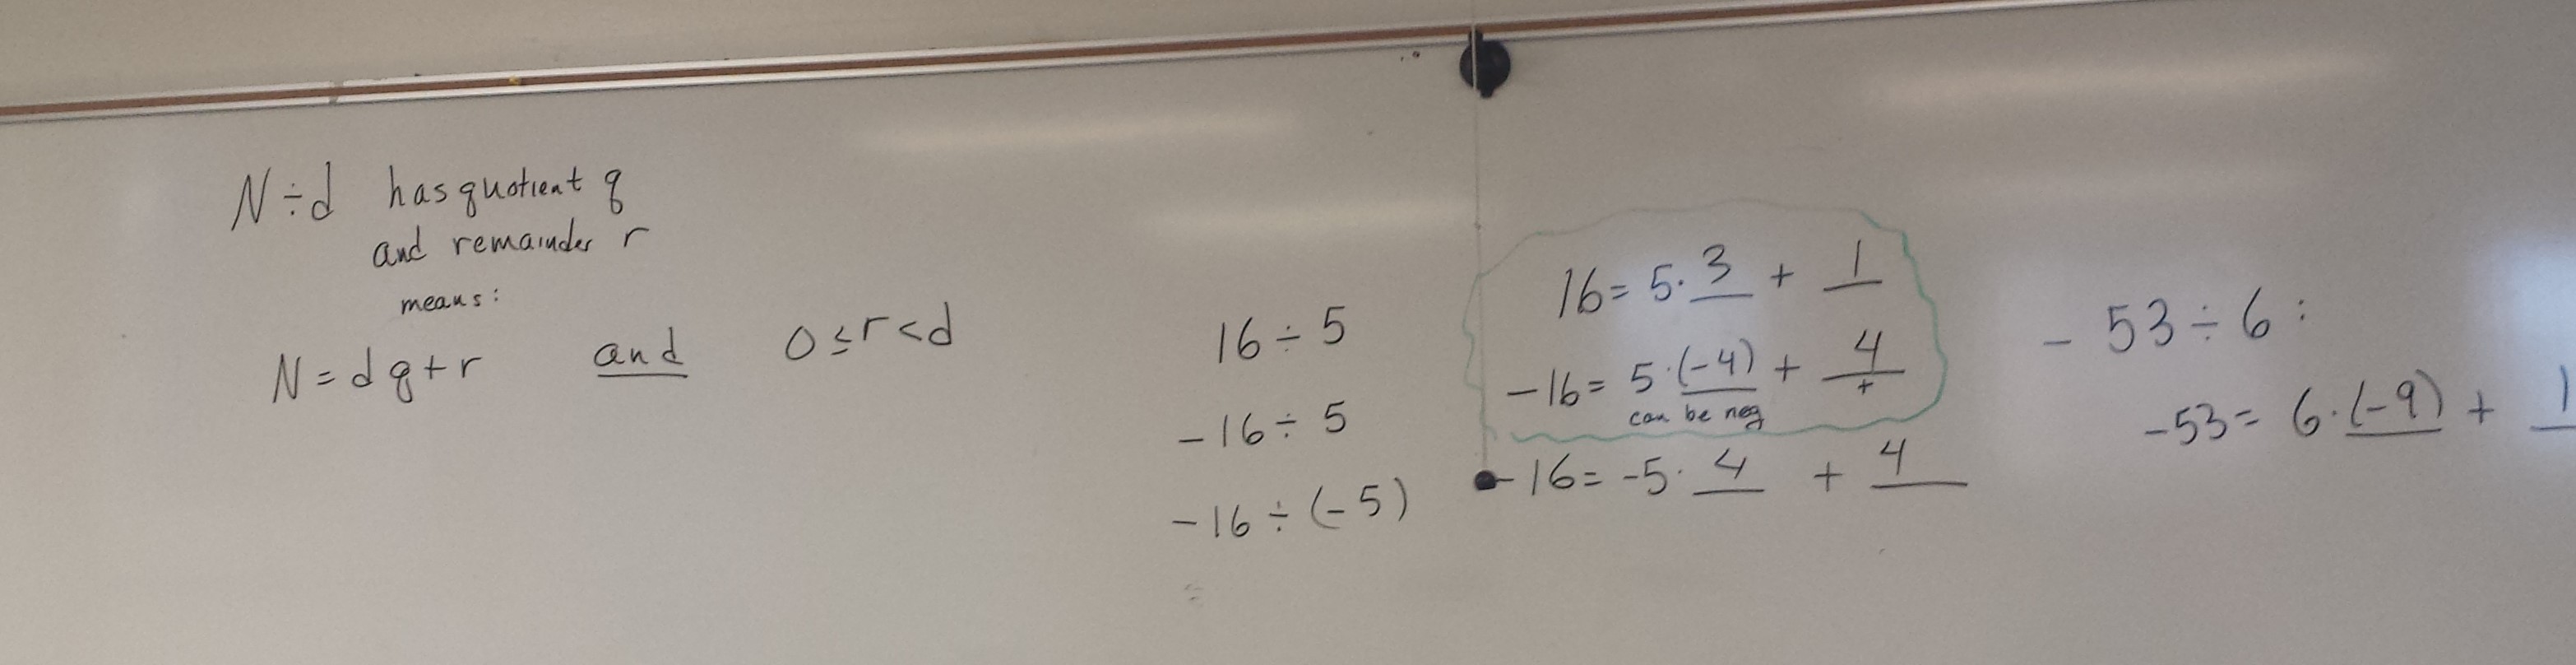 N ÷ d has quotient q
and remainder r
means:
N = dq + r and 0 ≤ r < d
16 ÷ 5
-16 ÷ 5
-16 ÷ (-5)
16 = 5 · 3 + 1
-16 = 5 · (-4) + 4
can be neg +
-16 = -5 · 4 + 4
- 53 ÷ 6 :
-53 = 6 · (-9) + 1